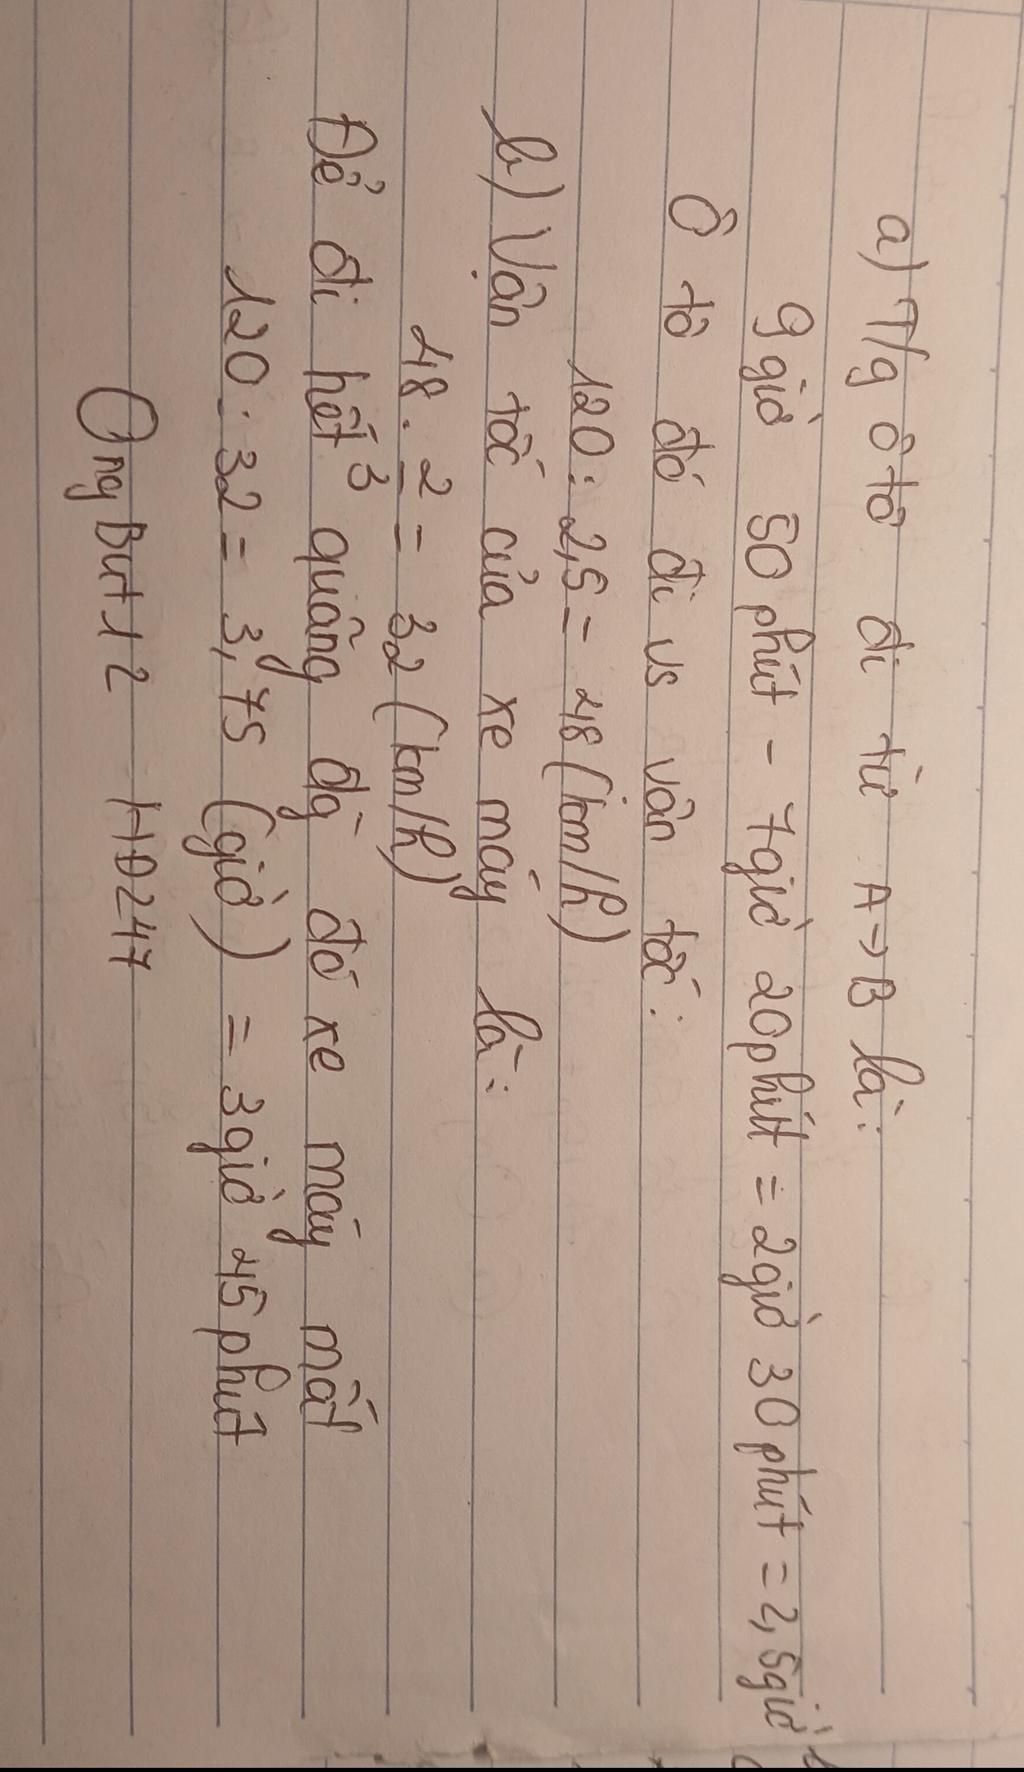 a) T/g ôtô đi từ A→B là:
9 giờ 50 phút - 7 giờ 20 phút = 2 giờ 30 phút = 2,5 giờ
Ô tô đó đi vs vân tốc:
120 : 2,5 = 48 (km/h)
b) Vận tốc của xe máy là:
48 . 2/3 = 32 (km/h)
Để đi hết quãng đg đó xe máy mất
120 : 32 = 3,75 (giờ) = 3 giờ 45 phút
Ong But12 HĐ247